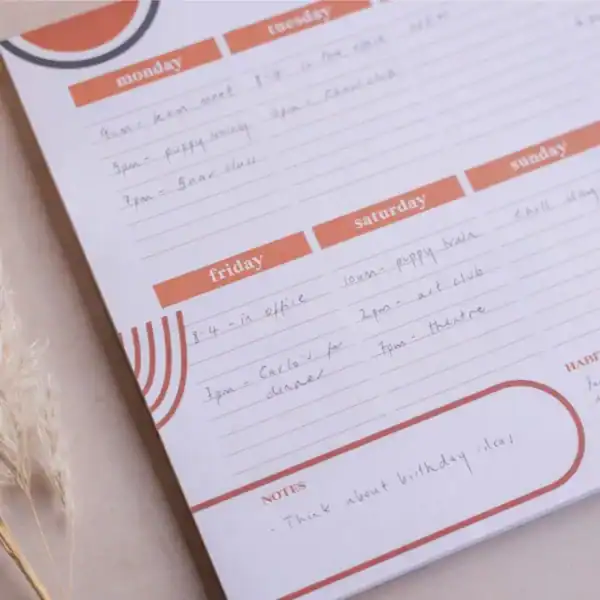 monday
tuesday
9am - team meet
3pm - puppy training
7pm - class
8-4 in the office
7pm - club
friday
saturday
sunday
8-4 - in office
7pm - Carlo's for
dinner
10am - puppy train
2pm - art club
7pm - theatre
chill day
NOTES
- Think about birthday ideas